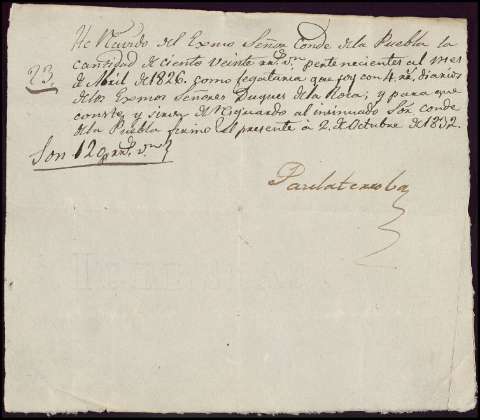 He Recivido del Exmo Señor Conde de la Puebla la
cantidad de ciento veinte rrs. vn. pertenecientes al mes
de Abril de 1826. como legataria que soy con 4. rrs. diarios
de los Exmos Señores Duques de la Roca; y para que
conste, y sirva de resguardo al insinuado Sor. conde
de la Puebla firmo el presente à 2. de Octubre de 1832.
23.
Son 120 rrs. vn.